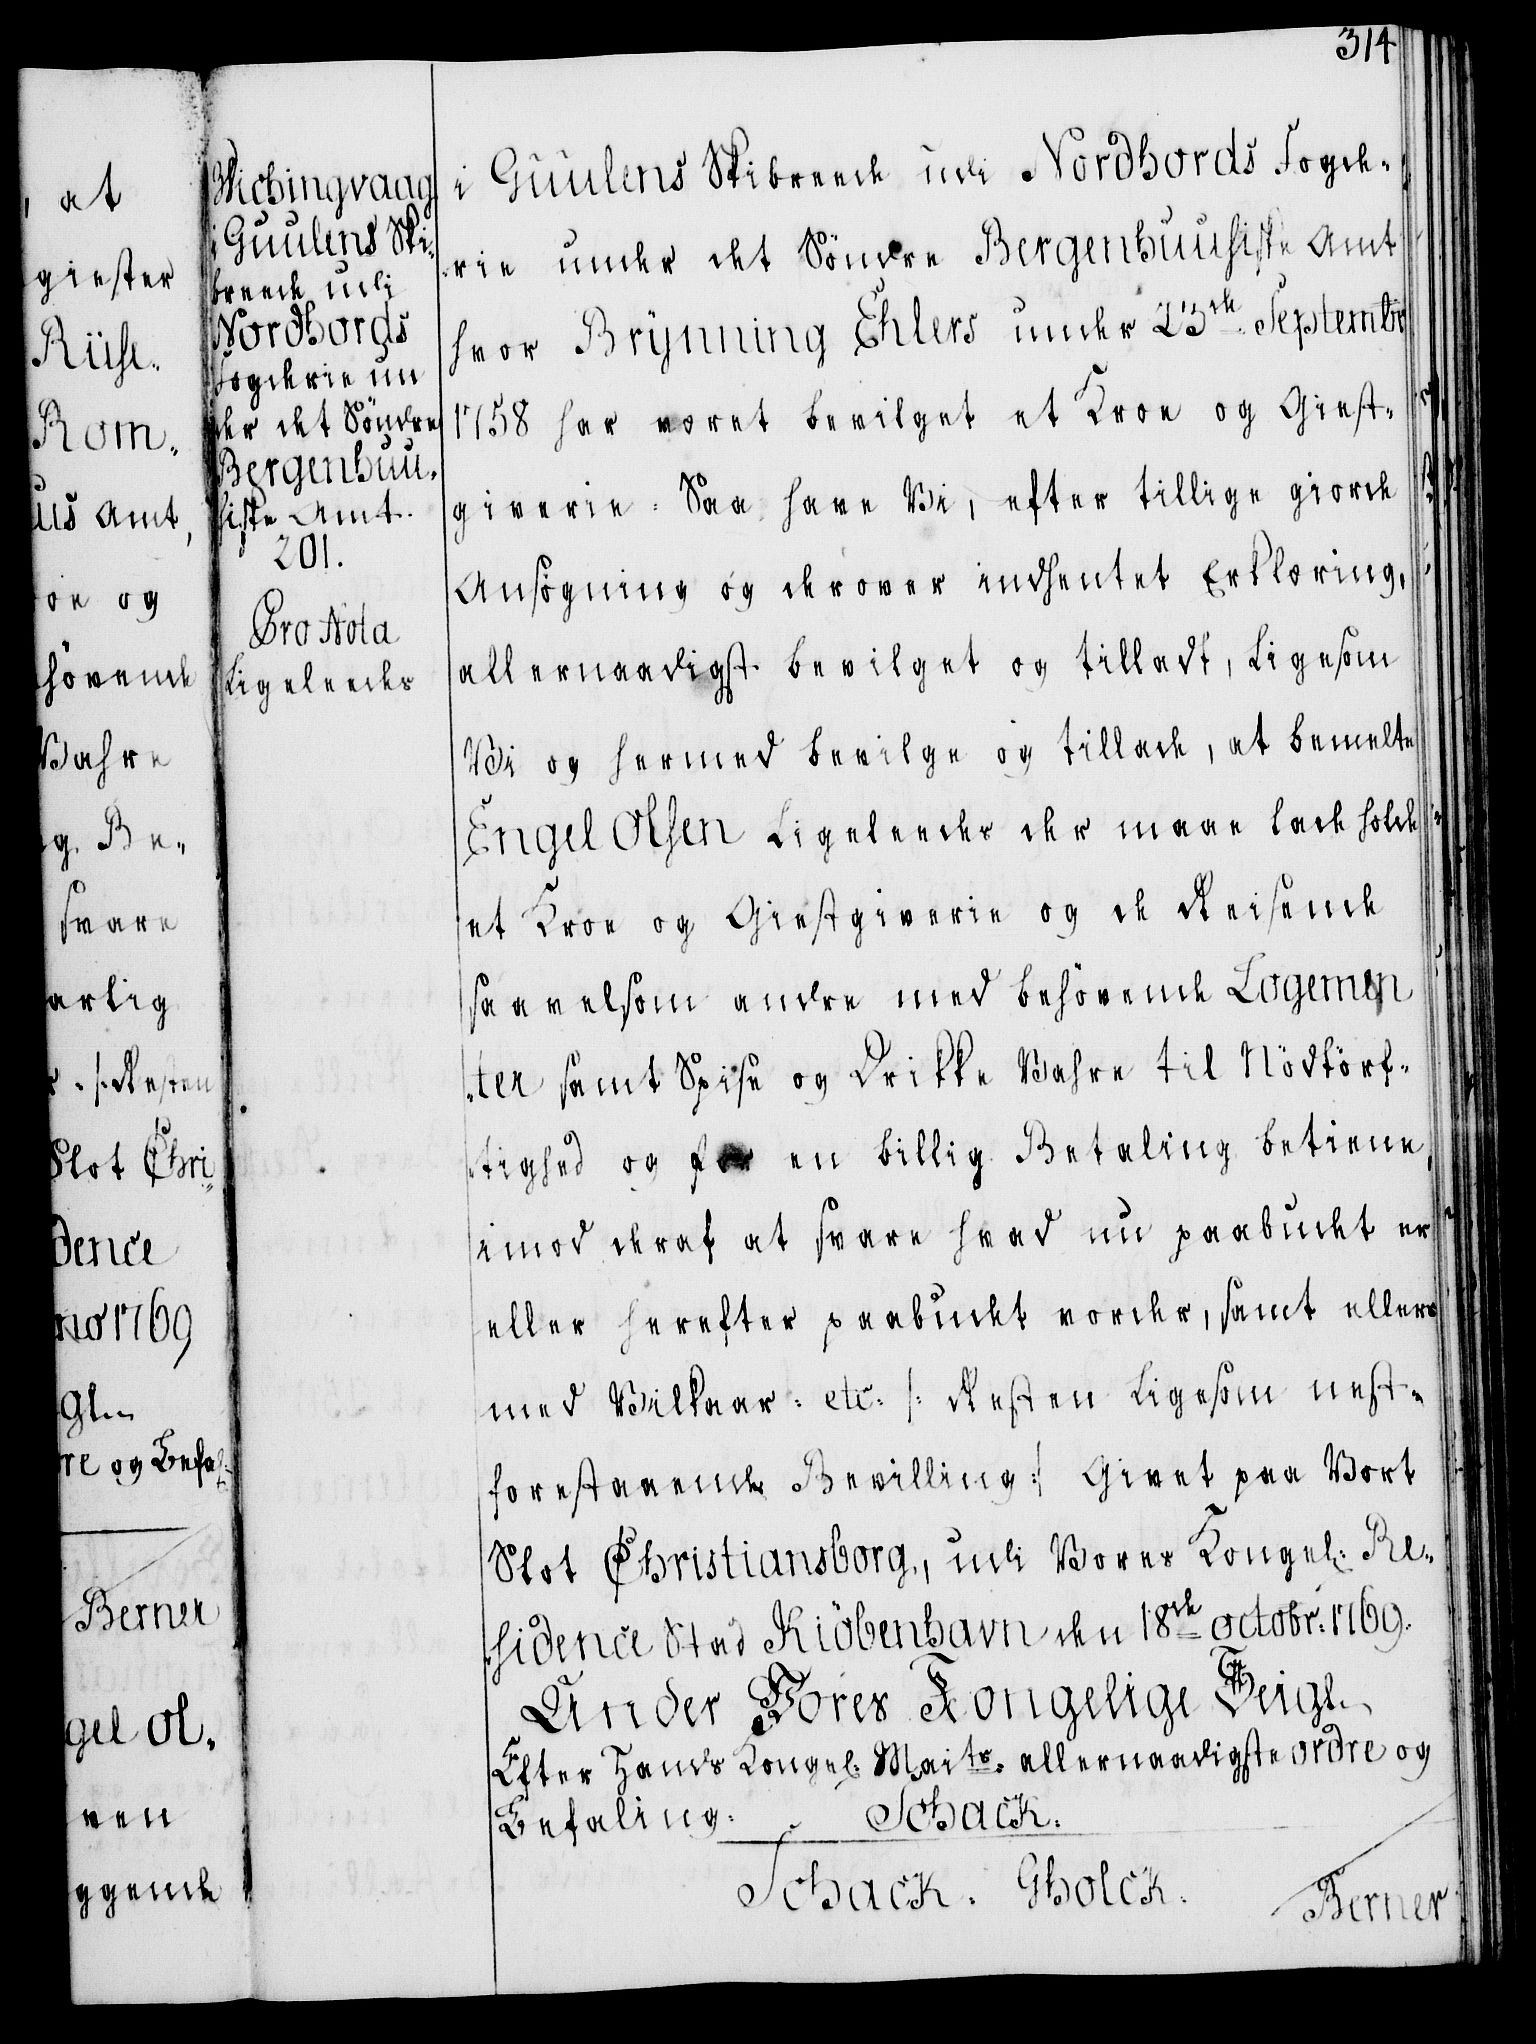 314
, at
giester
Riise-
Rom-
uus Amt,
oe og
hövende
Wahre
g Be-
svare
artig
Resten
Slot Chri-
dence
no 1769
Gl.
re og Befal:
Berner
gel Ol-
ven
ggende
Wichingvaag
i Guulens Ski-
breede udi
Nordhords
Fogderie un
der det Söndre
Bergenhuu-
siske Amt.
201.
Pro Nota
Ligeleedes
i Guulens Skibreede udi Nordhords Fogde-
rie under det Söndre Bergenhuusiske Amt
hvor Brynning Ehlers under 23de Septembr
1758 har været bevilget et Kroe og Giest-
giverie. Saa have Vi, efter tillige giorde
Ansögning og derover indhentet Erklæring,
allernaadigst bevilget og tilladt, ligesom
Vi og hermed bevilge og tillade, at bemelte
Engel Olsen ligeleedes der maae lade holde
et Kroe og Giestgiverie og de Reisende
saavelsom andre med behövende Logemen
ter samt Spise og Drikke Wahre til Nödtörf-
tighed og for en billig Betaling betiene,
imod deraf at svare hvad nu paabudet er
eller herefter paabudet vorder, samt ellers
med Vilkaar. etc. /: Resten ligesom nest-
forestaaende Bevilling :/ Givet paa Vort
Slot Christiansborg, udi Vores Kongel: Re-
sidence Stad Kiöbenhavn den 18de octobr: 1769.
Under Vores Kongelige Zeigl.
Efter Hands Kongel: Maits. allernaadigste ordre og
Befaling.
Schack.
Schack. Gholck.
Berner